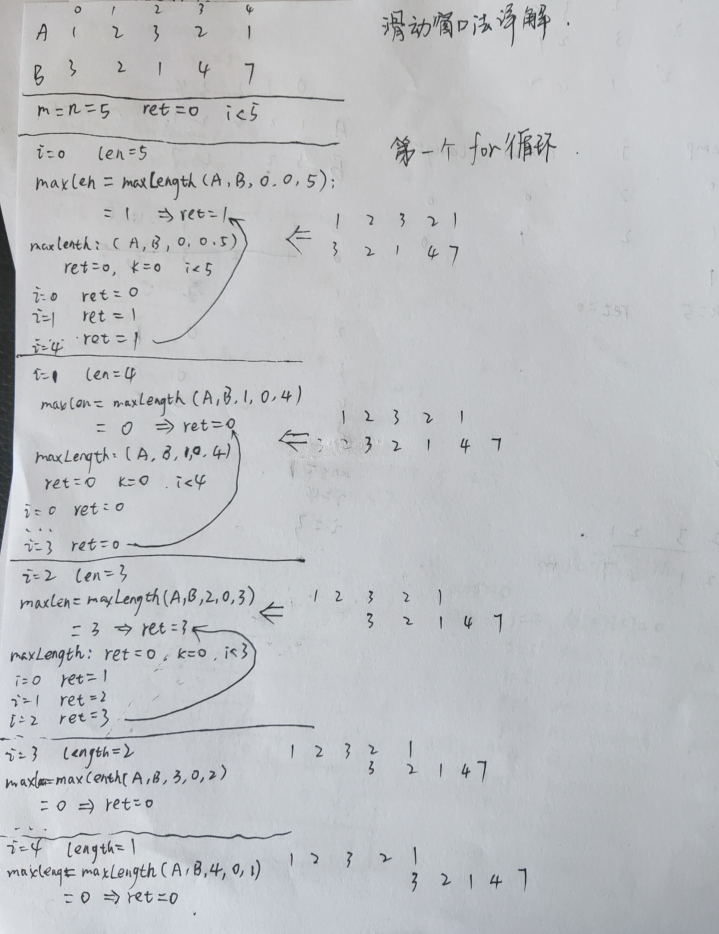 0 1 2 3 4
A 1 2 3 2 1
滑动窗口法详解.
B 3 2 1 4 7
m=n=5 ret=0 i<5
第一个for循环.
i=0 len=5
maxlen = maxLength(A,B,0,0,5):
= 1 ⇒ ret=1
1 2 3 2 1
maxlenth: (A,B,0,0.5)
⇐ 3 2 1 4 7
ret=0, k=0 i<5
i=0 ret=0
i=1 ret=1
i=4 ret=1
i=1 len=4
maxlen= maxLength(A,B,1,0,4)
1 2 3 2 1
= 0 ⇒ ret=0
⇐ 3 2 1 4 7
maxLength: (A,B,1,0.4)
ret=0 k=0 . i<4
i=0 ret=0
...
i=3 ret=0
i=2 len=3
maxlen= maxLength(A,B,2,0,3)
⇐ 1 2 3 2 1
= 3 ⇒ ret=3
3 2 1 4 7
maxLength: ret=0, k=0, i<3
i=0 ret=1
i=1 ret=2
i=2 ret=3
i=3 length=2
1 2 3 2 1
maxlen=maxLenth(A,B,3,0,2)
3 2 1 4 7
= 0 ⇒ ret=0
...
i=4 length=1
1 2 3 2 1
maxlengt= maxLength(A,B,4,0,1)
3 2 1 4 7
= 0 ⇒ ret=0